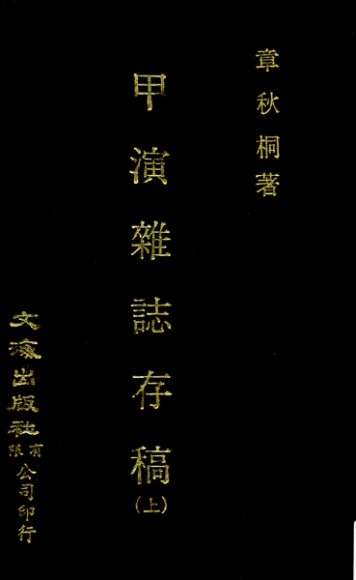 章秋桐著
甲演雜誌存稿(上)
文海出版社有限公司印行